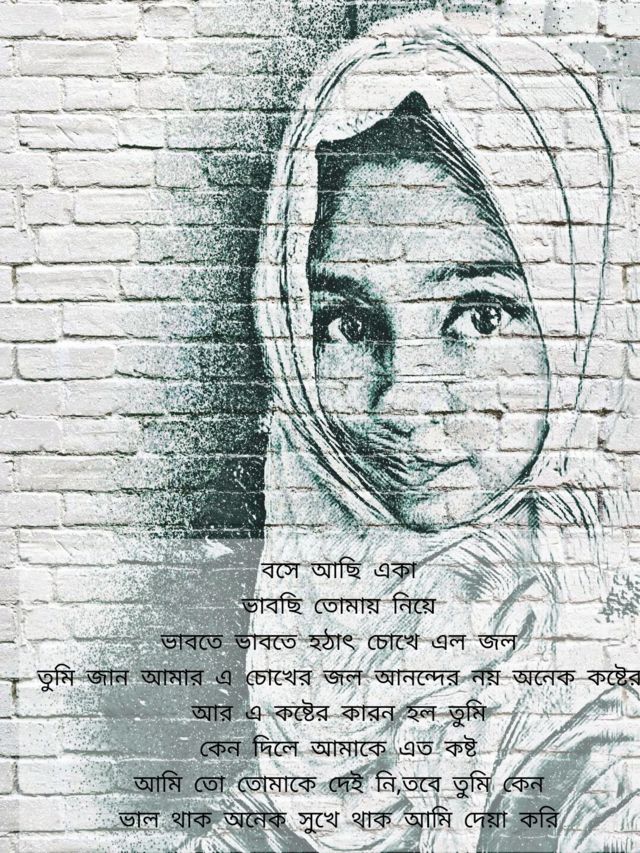 বসে আছি একা
ভাবছি তোমায় নিয়ে
ভাবতে ভাবতে হঠাৎ চোখে এল জল
তুমি জান আমার এ চোখের জল আনন্দের নয় অনেক কষ্টের
আর এ কষ্টের কারন হল তুমি
কেন দিলে আমাকে এত কষ্ট
আমি তো তোমাকে দেই নি,তবে তুমি কেন
ভাল থাক অনেক সুখে থাক আমি দেয়া করি